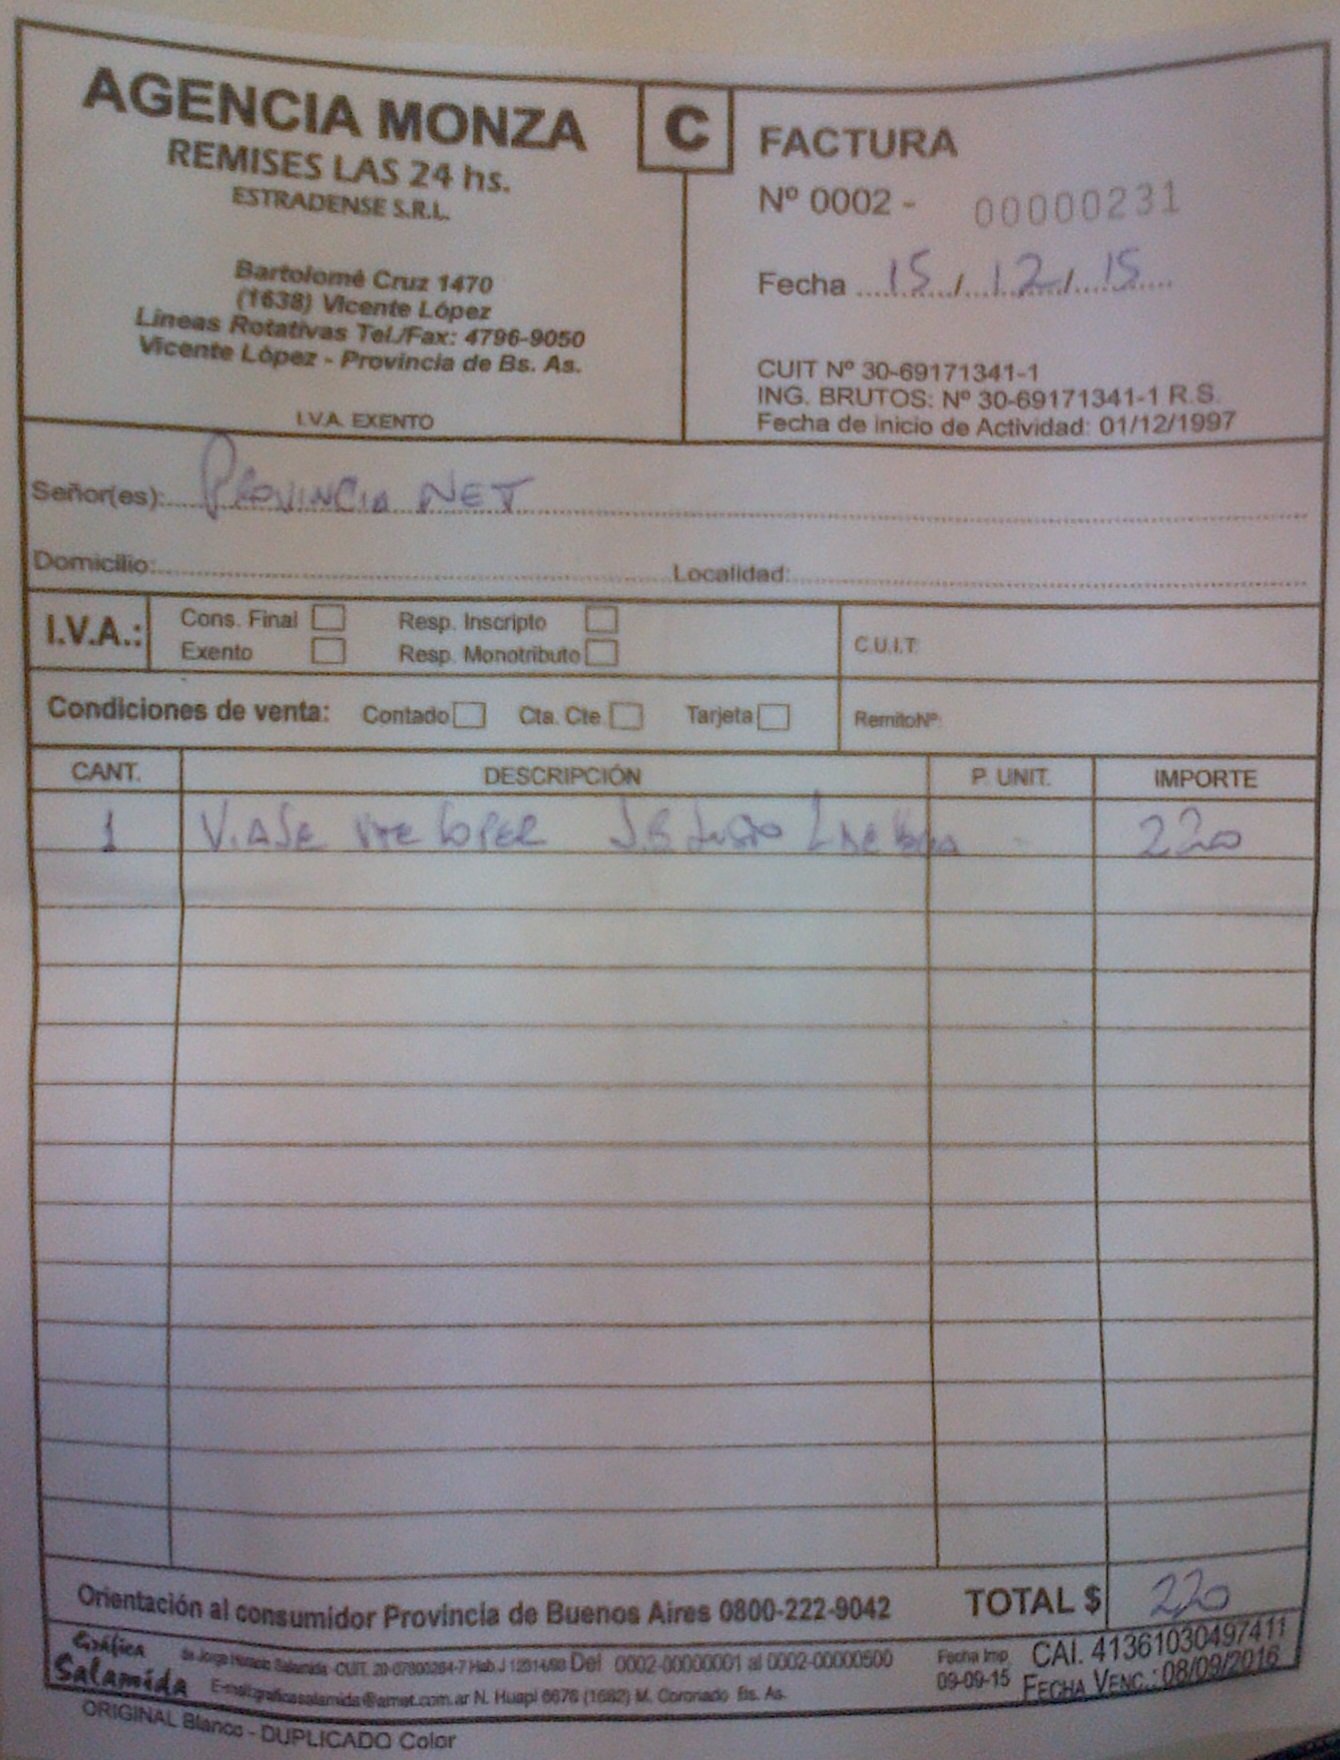 AGENCIA MONZA
REMISES LAS 24 hs.
ESTRADENSE S.R.L.
Bartolomé Cruz 1470
(1638) Vicente López
Líneas Rotativas Tel./Fax: 4796-9050
Vicente López - Provincia de Bs. As.
I.V.A. EXENTO
C
FACTURA
Nº 0002 - 00000231
Fecha 15 / 12 / 15
CUIT Nº 30-69171341-1
ING. BRUTOS: Nº 30-69171341-1 R.S.
Fecha de inicio de Actividad: 01/12/1997
Señor(es): PROVINCIA NET
Domicilio: Localidad:
I.V.A.: Cons. Final Resp. Inscripto
Exento Resp. Monotributo
C.U.I.T.
Condiciones de venta: Contado Cta. Cte. Tarjeta
Remito Nº:
CANT. DESCRIPCIÓN P. UNIT. IMPORTE
1 VIAJE VTE LOPEZ 220
Orientación al consumidor Provincia de Buenos Aires 0800-222-9042
TOTAL $ 220
Gráfica Salamida
de Jorge Horacio Salamida - CUIT. Del 0002-00000001 al 0002-00000500
E-mail:graficasalamida@arnet.com.ar N. Huapi 6676 (1682) M. Coronado Bs. As.
Fecha Imp. 09-09-15
CAI. 41361030497411
FECHA VENC.: 08/09/2016
ORIGINAL Blanco - DUPLICADO Color